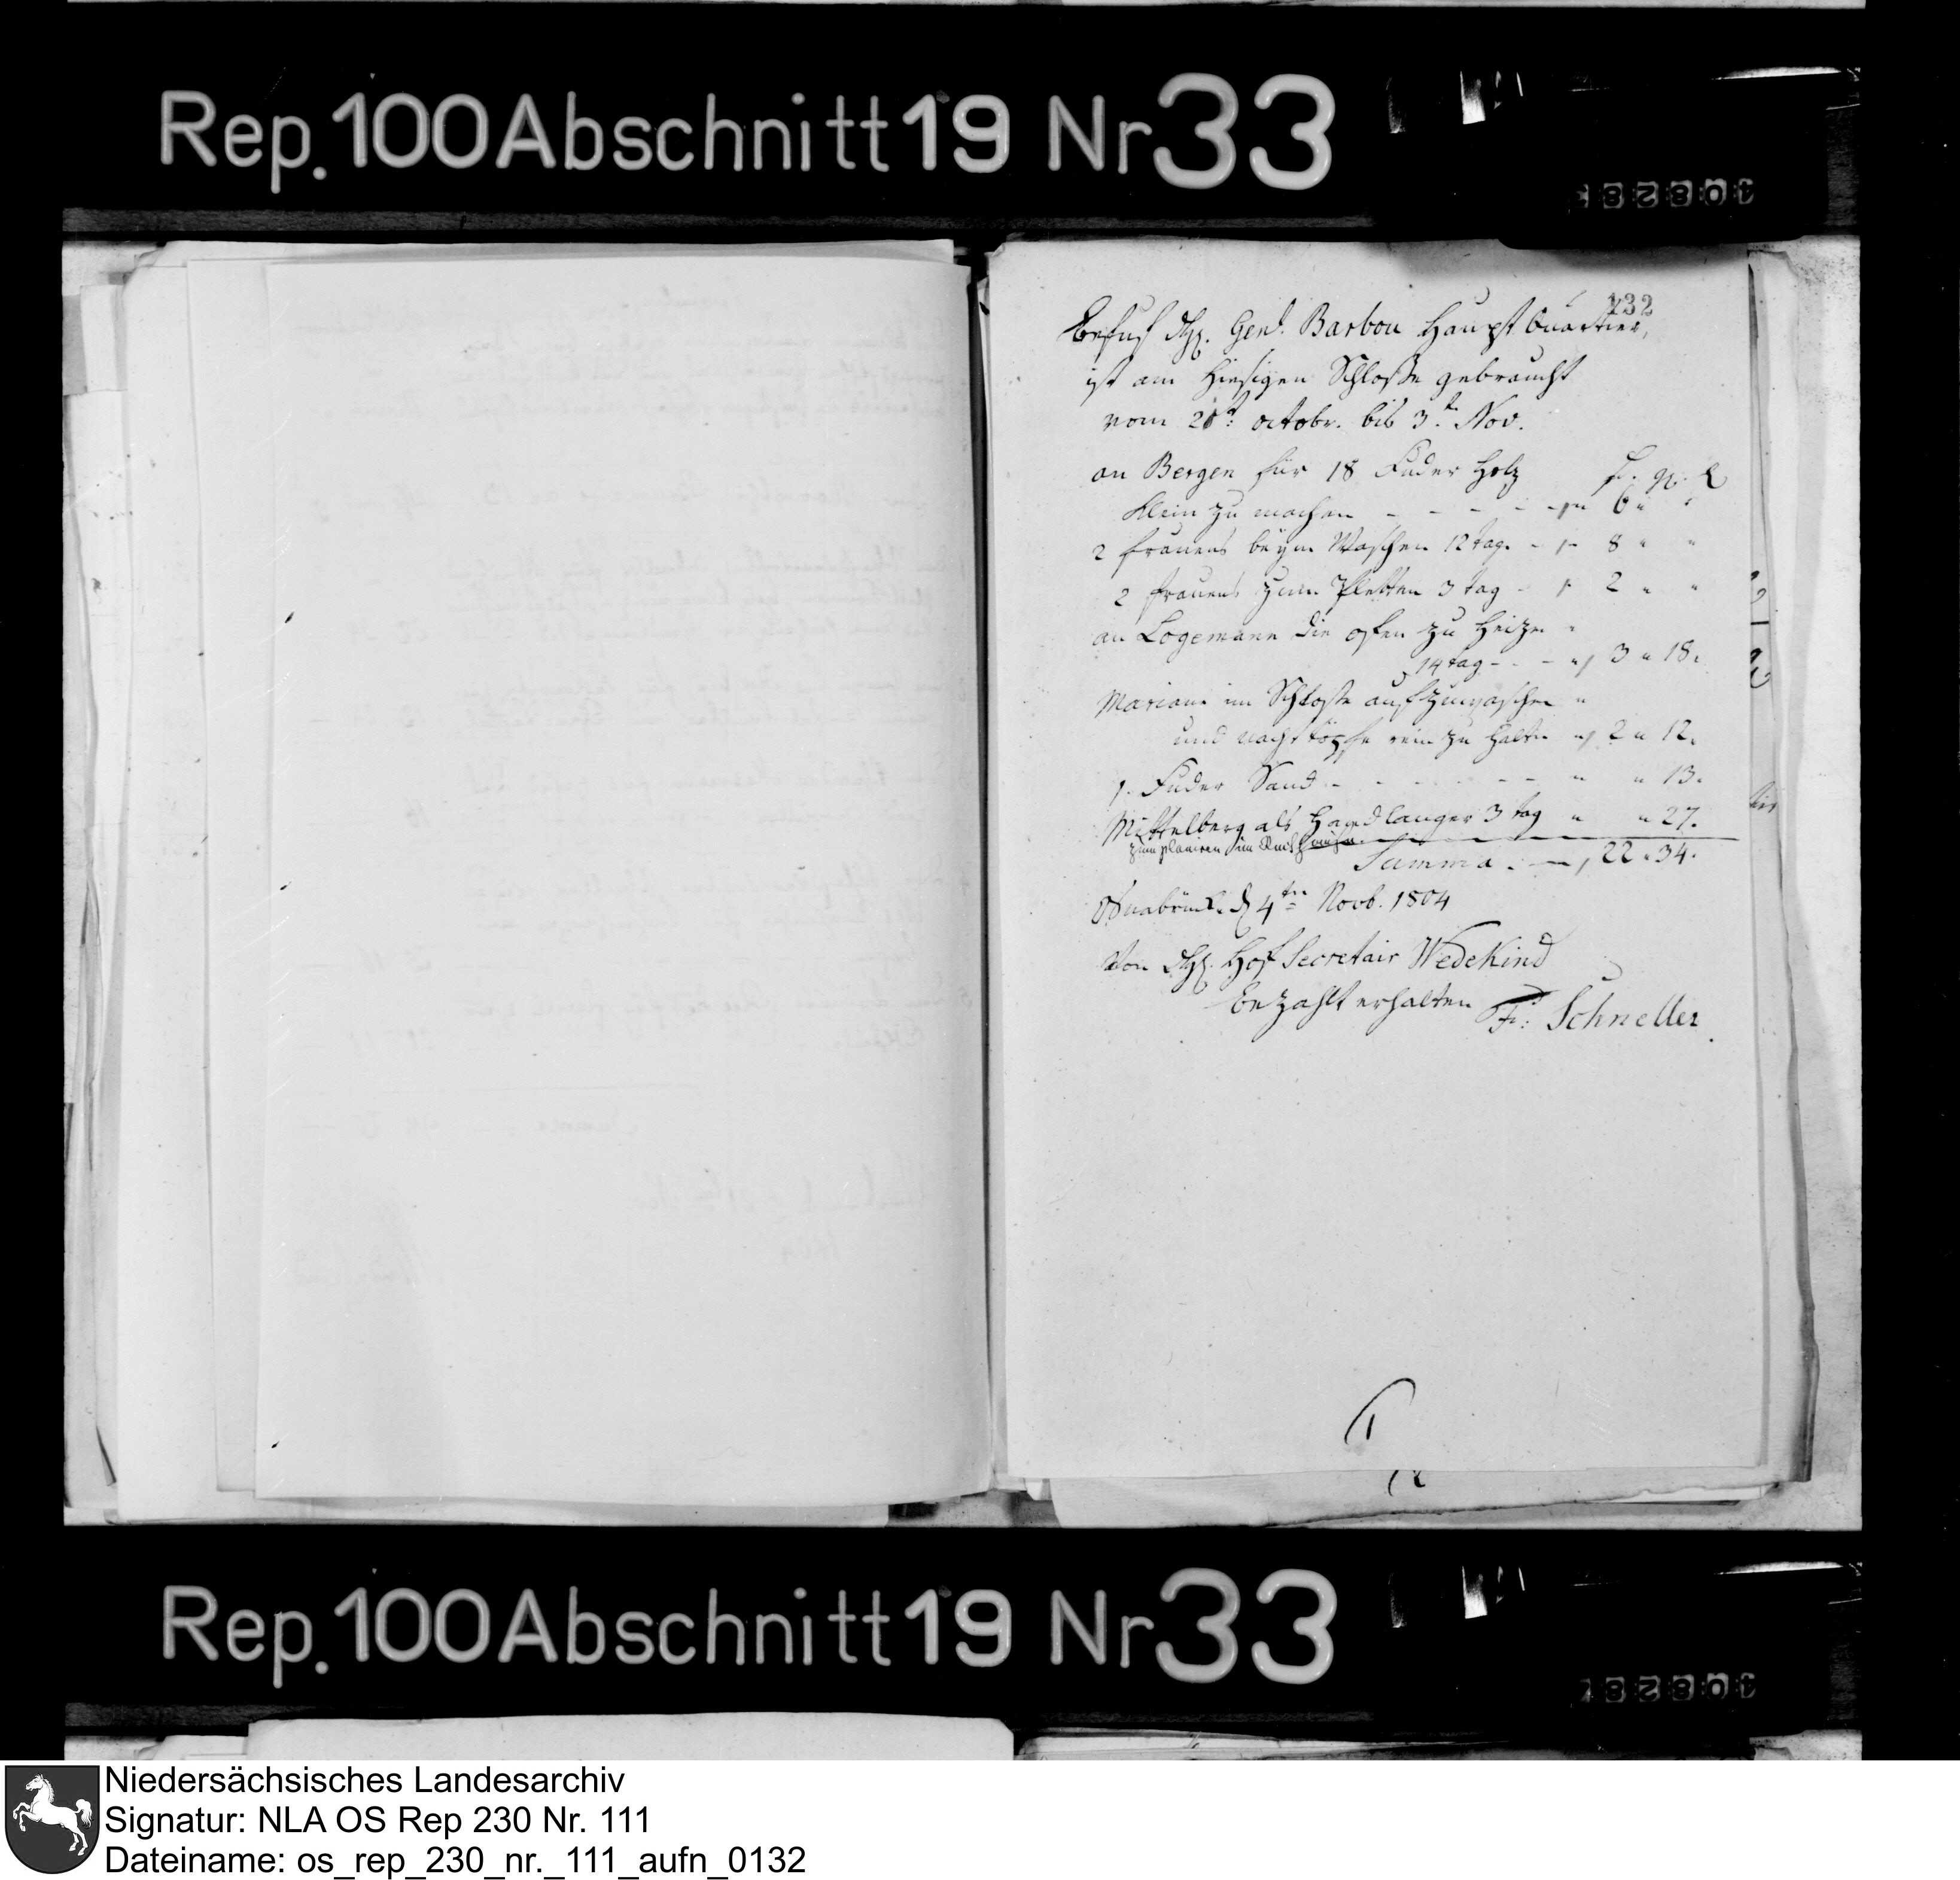 Rep. 100 Abschnitt 19 Nr 33
132
Behuf Gen. Barbou Haupt Quartier,
ist am hiesigen Schloße gebraucht
vom 21t octobr. bis 3t Nov.
an Bergen für 18 Fuder Holz
klein zu machen - - - - 6 "
2 frauens beym Waschen 12 tag. - 8 " "
2 frauens zum Pletten 3 tag - 2 " "
an Logemann die ofen zu heizen
14 tag - - - 3 " 18.
Mariane im Schloße aufzuwaschen
und nachttöpfe rein zu halten 2 " 12.
1. Fuder Sand - - - - - " " 13.
Mittelberg als Handlanger 3 tag " " 27.
zum planiren im
Summa. 22 " 34.
Osnabrück d 4ten Novb. 1804
Von Hof Secretair Wedekind
bezahlt erhalten Fr: Schneller.
Rep. 100 Abschnitt 19 Nr 33
Niedersächsisches Landesarchiv
Signatur: NLA OS Rep 230 Nr. 111
Dateiname: os_rep_230_nr._111_aufn_0132